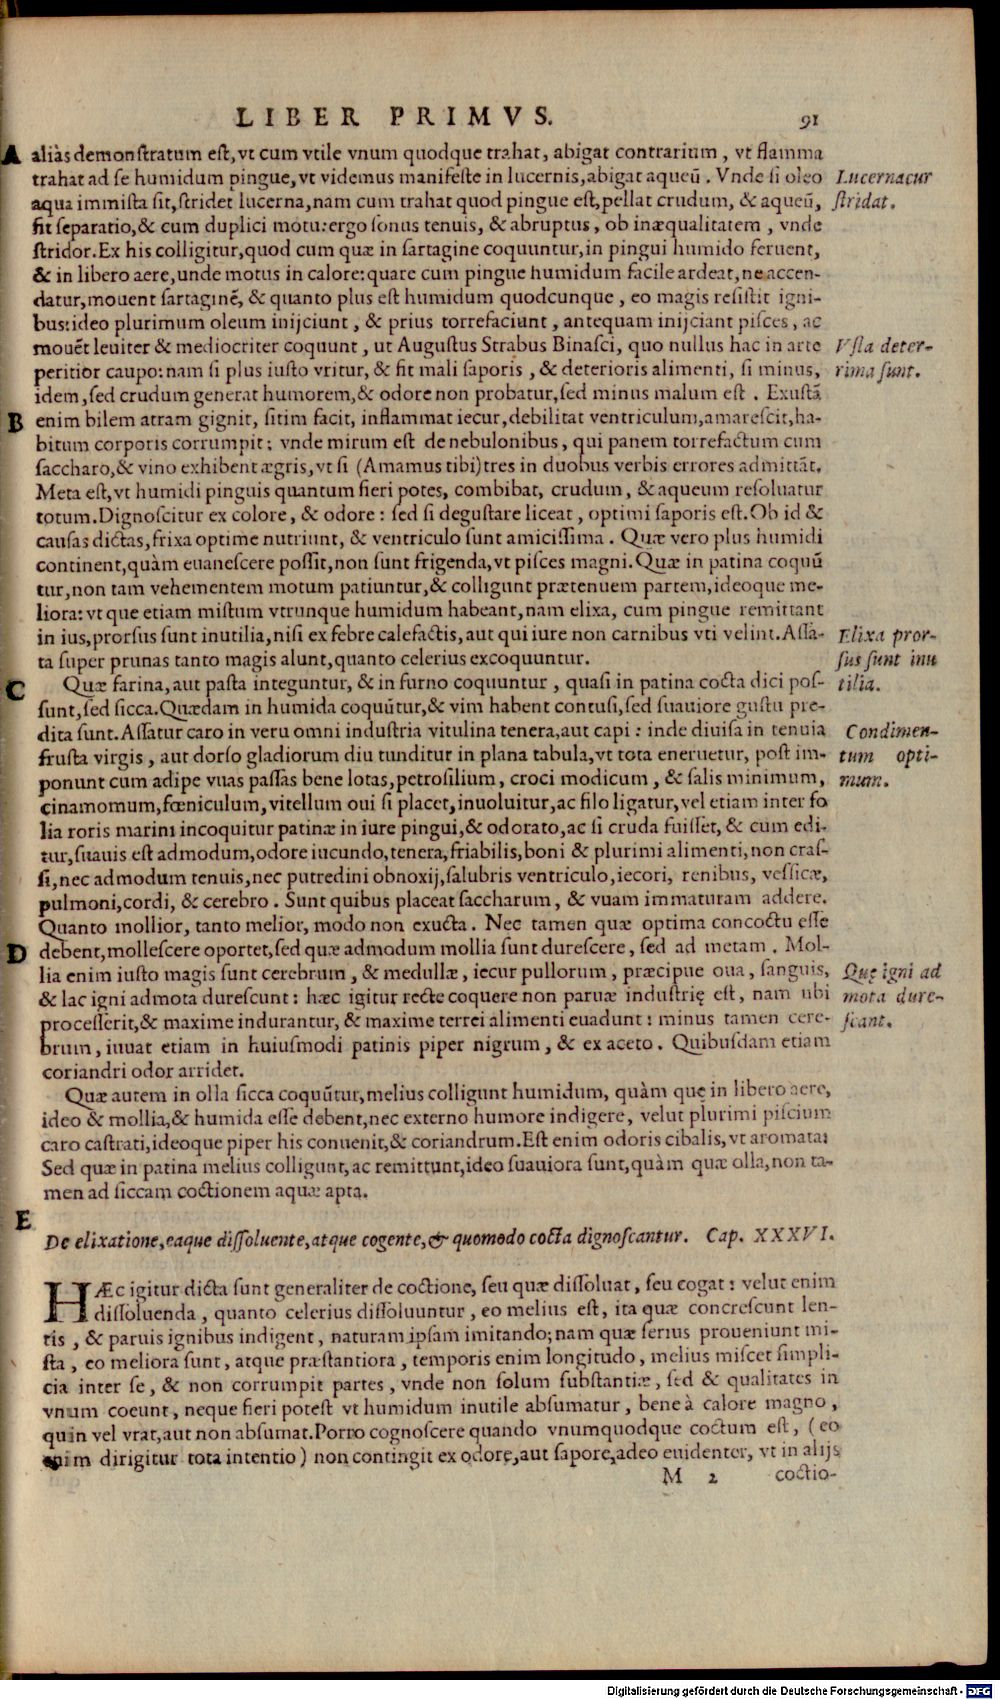 LIBER PRIMVS. 91
A aliàs demonstratum est, vt cum vtile vnum quodque trahat, abigat contrarium, vt flamma
trahat ad se humidum pingue, vt videmus manifeste in lucernis, abigat aqueũ. Vnde si oleo Lucernacur
aqua immista sit, stridet lucerna, nam cum trahat quod pingue est, pellat crudum, & aqueũ, stridat.
fit separatio, & cum duplici motu: ergo sonus tenuis, & abruptus, ob inæqualitatem, vnde
stridor. Ex his colligitur, quod cum quæ in sartagine coquuntur, in pingui humido feruent,
& in libero aere, unde motus in calore: quare cum pingue humidum facile ardeat, ne accen-
datur, mouent sartaginẽ, & quanto plus est humidum quodcunque, eo magis resistit igni-
bus: ideo plurimum oleum inijciunt, & prius torrefaciunt, antequam inijciant pisces, ac
mouẽt leuiter & mediocriter coquunt, ut Augustus Strabus Binasci, quo nullus hac in arte Vsta deter-
peritior caupo: nam si plus iusto vritur, & fit mali saporis, & deterioris alimenti, si minus, rima sunt.
idem, sed crudum generat humorem, & odore non probatur, sed minus malum est. Exustã
B enim bilem atram gignit, sitim facit, inflammat iecur, debilitat ventriculum, amarescit, ha-
bitum corporis corrumpit: vnde mirum est de nebulonibus, qui panem torrefactum cum
saccharo, & vino exhibent ægris, vt si (Amamus tibi) tres in duobus verbis errores admittãt.
Meta est, vt humidi pinguis quantum fieri potes, combibat, crudum, & aqueum resoluatur
totum. Dignoscitur ex colore, & odore: sed si degustare liceat, optimi saporis est. Ob id &
causas dictas, frixa optime nutriunt, & ventriculo sunt amicissima. Quæ vero plus humidi
continent, quàm euanescere possit, non sunt frigenda, vt pisces magni. Quæ in patina coquũ
tur, non tam vehementem motum patiuntur, & colligunt prætenuem partem, ideoque me-
liora: vt que etiam mistum vtrunque humidum habeant, nam elixa, cum pingue remittant
in ius, prorsus sunt inutilia, nisi ex febre calefactis, aut qui iure non carnibus vti velint. Assa- Elixa pror-
ta super prunas tanto magis alunt, quanto celerius excoquuntur. sus sunt inu
C Quæ farina, aut pasta integuntur, & in furno coquuntur, quasi in patina cocta dici pos- tilia.
sunt, sed sicca. Quædam in humida coquũtur, & vim habent contusi, sed suauiore gustu pre-
dita sunt. Assatur caro in veru omni industria vitulina tenera, aut capi: inde diuisa in tenuia Condimen-
frusta virgis, aut dorso gladiorum diu tunditur in plana tabula, vt tota eneruetur, post im- tum opti-
ponunt cum adipe vuas passas bene lotas, petrosilium, croci modicum, & salis minimum, mum.
cinamomum, fœniculum, vitellum oui si placet, inuoluitur, ac filo ligatur, vel etiam inter fo
lia roris marini incoquitur patinæ in iure pingui, & odorato, ac si cruda fuisset, & cum edi-
tur, suauis est admodum, odore iucundo, tenera, friabilis, boni & plurimi alimenti, non cras-
si, nec admodum tenuis, nec putredini obnoxij, salubris ventriculo, iecori, renibus, vessicæ,
pulmoni, cordi, & cerebro. Sunt quibus placeat saccharum, & vuam immaturam addere.
Quanto mollior, tanto melior, modo non exucta. Nec tamen quæ optima concoctu esse
D debent, mollescere oportet, sed quæ admodum mollia sunt durescere, sed ad metam. Mol-
lia enim iusto magis sunt cerebrum, & medullæ, iecur pullorum, præcipue oua, sanguis, Quę igni ad
& lac igni admota durescunt: hæc igitur recte coquere non paruæ industrię est, nam ubi mota dure-
processerit, & maxime indurantur, & maxime terrei alimenti euadunt: minus tamen cere- scant.
brum, iuuat etiam in huiusmodi patinis piper nigrum, & ex aceto. Quibusdam etiam
coriandri odor arridet.
Quæ autem in olla sicca coquũtur, melius colligunt humidum, quàm quę in libero aere,
ideo & mollia, & humida esse debent, nec externo humore indigere, velut plurimi piscium
caro castrati, ideoque piper his conuenit, & coriandrum. Est enim odoris cibalis, vt aromata:
Sed quæ in patina melius colligunt, ac remittunt, ideo suauiora sunt, quàm quæ olla, non ta-
men ad siccam coctionem aquæ apta.
E
De elixatione, eaque dissoluente, atque cogente, & quomodo cocta dignoscantur. Cap. XXXVI.
HÆc igitur dicta sunt generaliter de coctione, seu quæ dissoluat, seu cogat: velut enim
dissoluenda, quanto celerius dissoluuntur, eo melius est, ita quæ concrescunt len-
tis, & paruis ignibus indigent, naturam ipsam imitando; nam quæ serius proueniunt mi-
sta, eo meliora sunt, atque præstantiora, temporis enim longitudo, melius miscet simpli-
cia inter se, & non corrumpit partes, vnde non solum substantiæ, sed & qualitates in
vnum coeunt, neque fieri potest vt humidum inutile absumatur, bene à calore magno,
quin vel vrat, aut non absumat. Porro cognoscere quando vnumquodque coctum est, (eo
enim dirigitur tota intentio) non contingit ex odore, aut sapore, adeo euidenter, vt in alijs
M 2 coctio-
Digitalisierung gefördert durch die Deutsche Forschungsgemeinschaft - DFG